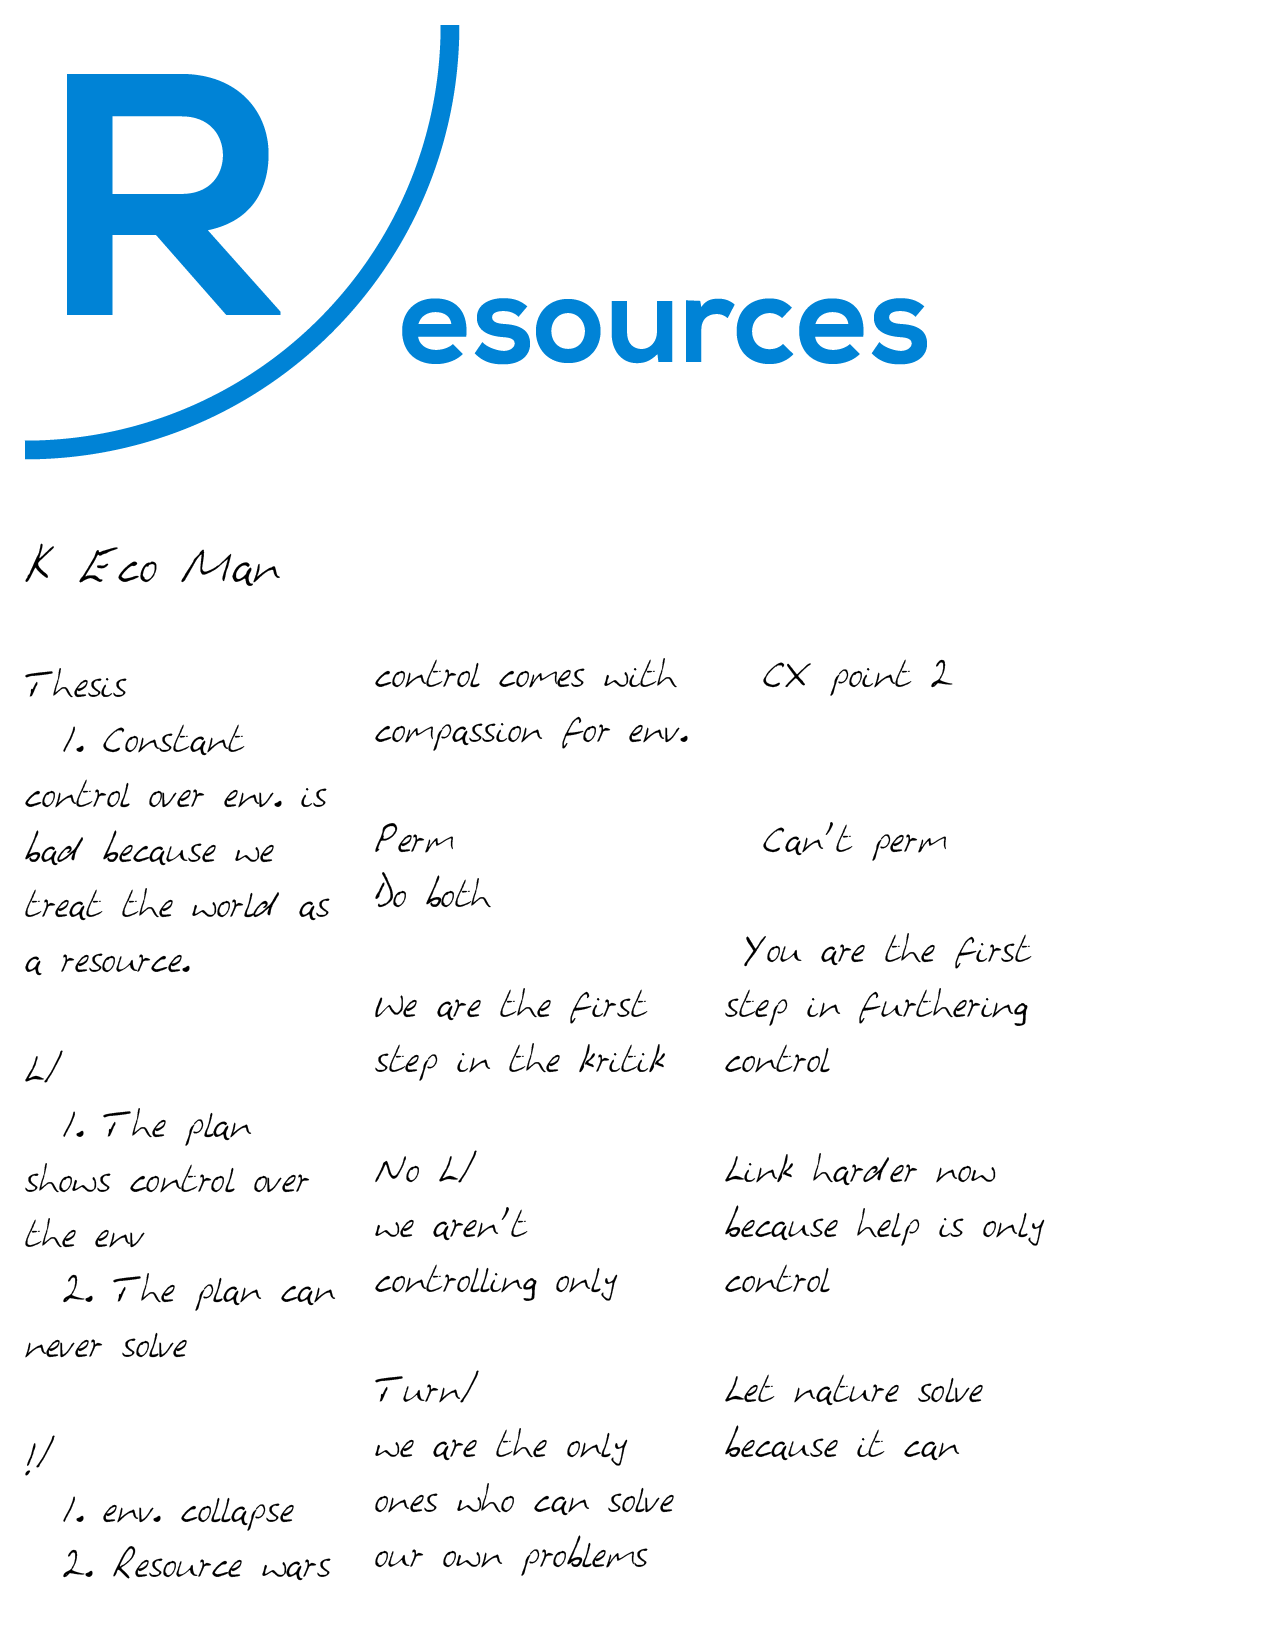 Resources
K Eco Man
Thesis
1. Constant
control over env. is
bad because we
treat the world as
a resource.
L/
1. The plan
shows control over
the env
2. The plan can
never solve
!/
1. env. collapse
2. Resource wars
control comes with
compassion for env.
Perm
Do both
We are the first
step in the kritik
No L/
we aren't
controlling only
Turn/
we are the only
ones who can solve
our own problems
CX point 2
Can't perm
You are the first
step in furthering
control
Link harder now
because help is only
control
Let nature solve
because it can